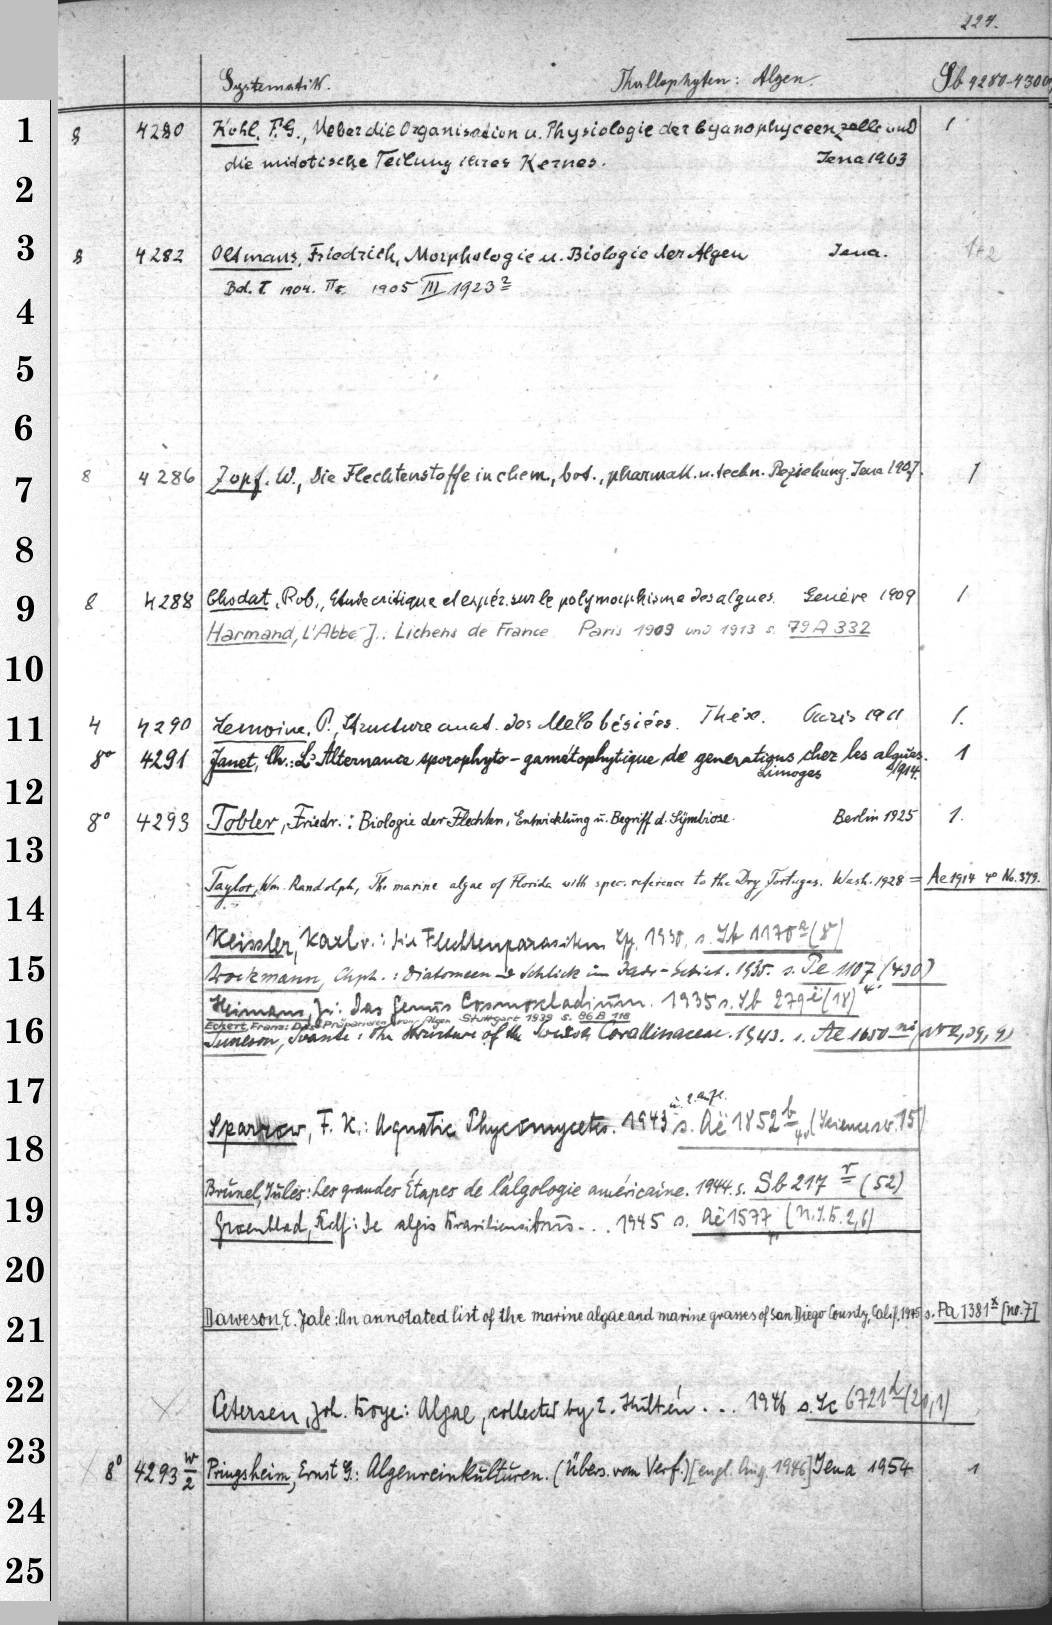 224.
Systematik. Thallophyten: Algen. Sb 4280-4300
1 8 4280 Kohl, F.G., Ueber die Organisation u. Physiologie der Cyanophyceenzelle und 1
die mitotische Teilung ihres Kernes. Jena 1903
2
3 8 4282 Oltmans, Friedrich, Morphologie u. Biologie der Algen Jena. 1+2
Bd. I 1904. II 1905 III 1923²
4
5
6
7 8 4286 Zopf. W., Die Flechtenstoffe in chem., bot., pharmak. u. techn. Beziehung. Jena 1907. 1
8
9 8 4288 Chodat, Rob., Etude critique et expér. sur le polymorphisme des algues. Genève 1909 1
Harmand, L'Abbé J.: Lichens de France Paris 1909 und 1913 s. 79 A 332
10
11 4 4290 Lemoine, P., Structure anat. des Mélobésiées. Thèse. Paris 1911 1.
8° 4291 Janet, Ch.: L'Alternance sporophyto-gamétophytique de generations chez les algues. 1
12 Limoges 1914.
13 8° 4293 Tobler, Friedr.: Biologie der Flechten, Entwicklung u. Begriff d. Symbiose. Berlin 1925 1.
Taylor, Wm. Randolph, The marine algae of Florida with spec. reference to the Dry Tortugas. Wash. 1928 = Ae 1914 No. 379.
14
Keissler, Karl v.: Die Flechtenparasiten Lpg. 1930, s. Sb 1170 (8)
15 Brockmann, Chph.: Diatomeen u. Schlick im Jade-Gebiet. 1935. s. Pe 1107 (430)
Heimans, J.: Das Genus Cosmocladium. 1935 s. Sb 279 (18)
Eckert, Franz: Das Präparieren von Algen Stuttgart 1939 s. 86 B 118
16 Suneson, Svante: The structure of the Corallinaceae. 1943. s. Ae 1650
17
Sparrow, F. K.: Aquatic Phycomycetes. 1943 u. 2. Aufl. s. Aë 1852 b (Science sv. 15)
18
Brunel, Jules: Les grandes Étapes de l'algologie américaine. 1944. s. Sb 217 r (52)
19 Groenblad, Rolf: De algis Brasiliensibus... 1945 s. Aë 1577 (N.S.B. 2,6)
20
21 Daweson, E. Yale: An annotated list of the marine algae and marine grasses of San Diego County, Calif. 1945 s. Pa 1381 x [no. 7]
22 Petersen, Joh. Boye: Algae, collected by E. Hultén... 1946 s. Sc 6721 d (20,1)
23 8° 4293 w/2 Pringsheim, Ernst G.: Algenreinkulturen. (Übers. vom Verf.) [engl. Ausg. 1946] Jena 1954 1
24
25